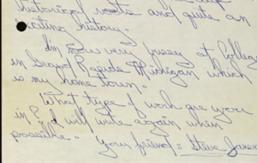 historical roots and quite an
history.
I'm now very busy at College
in Grand Rapids Michigan which
is my home town.
What type of work are you
in? I will write again when
possible.
Your friend = Steve